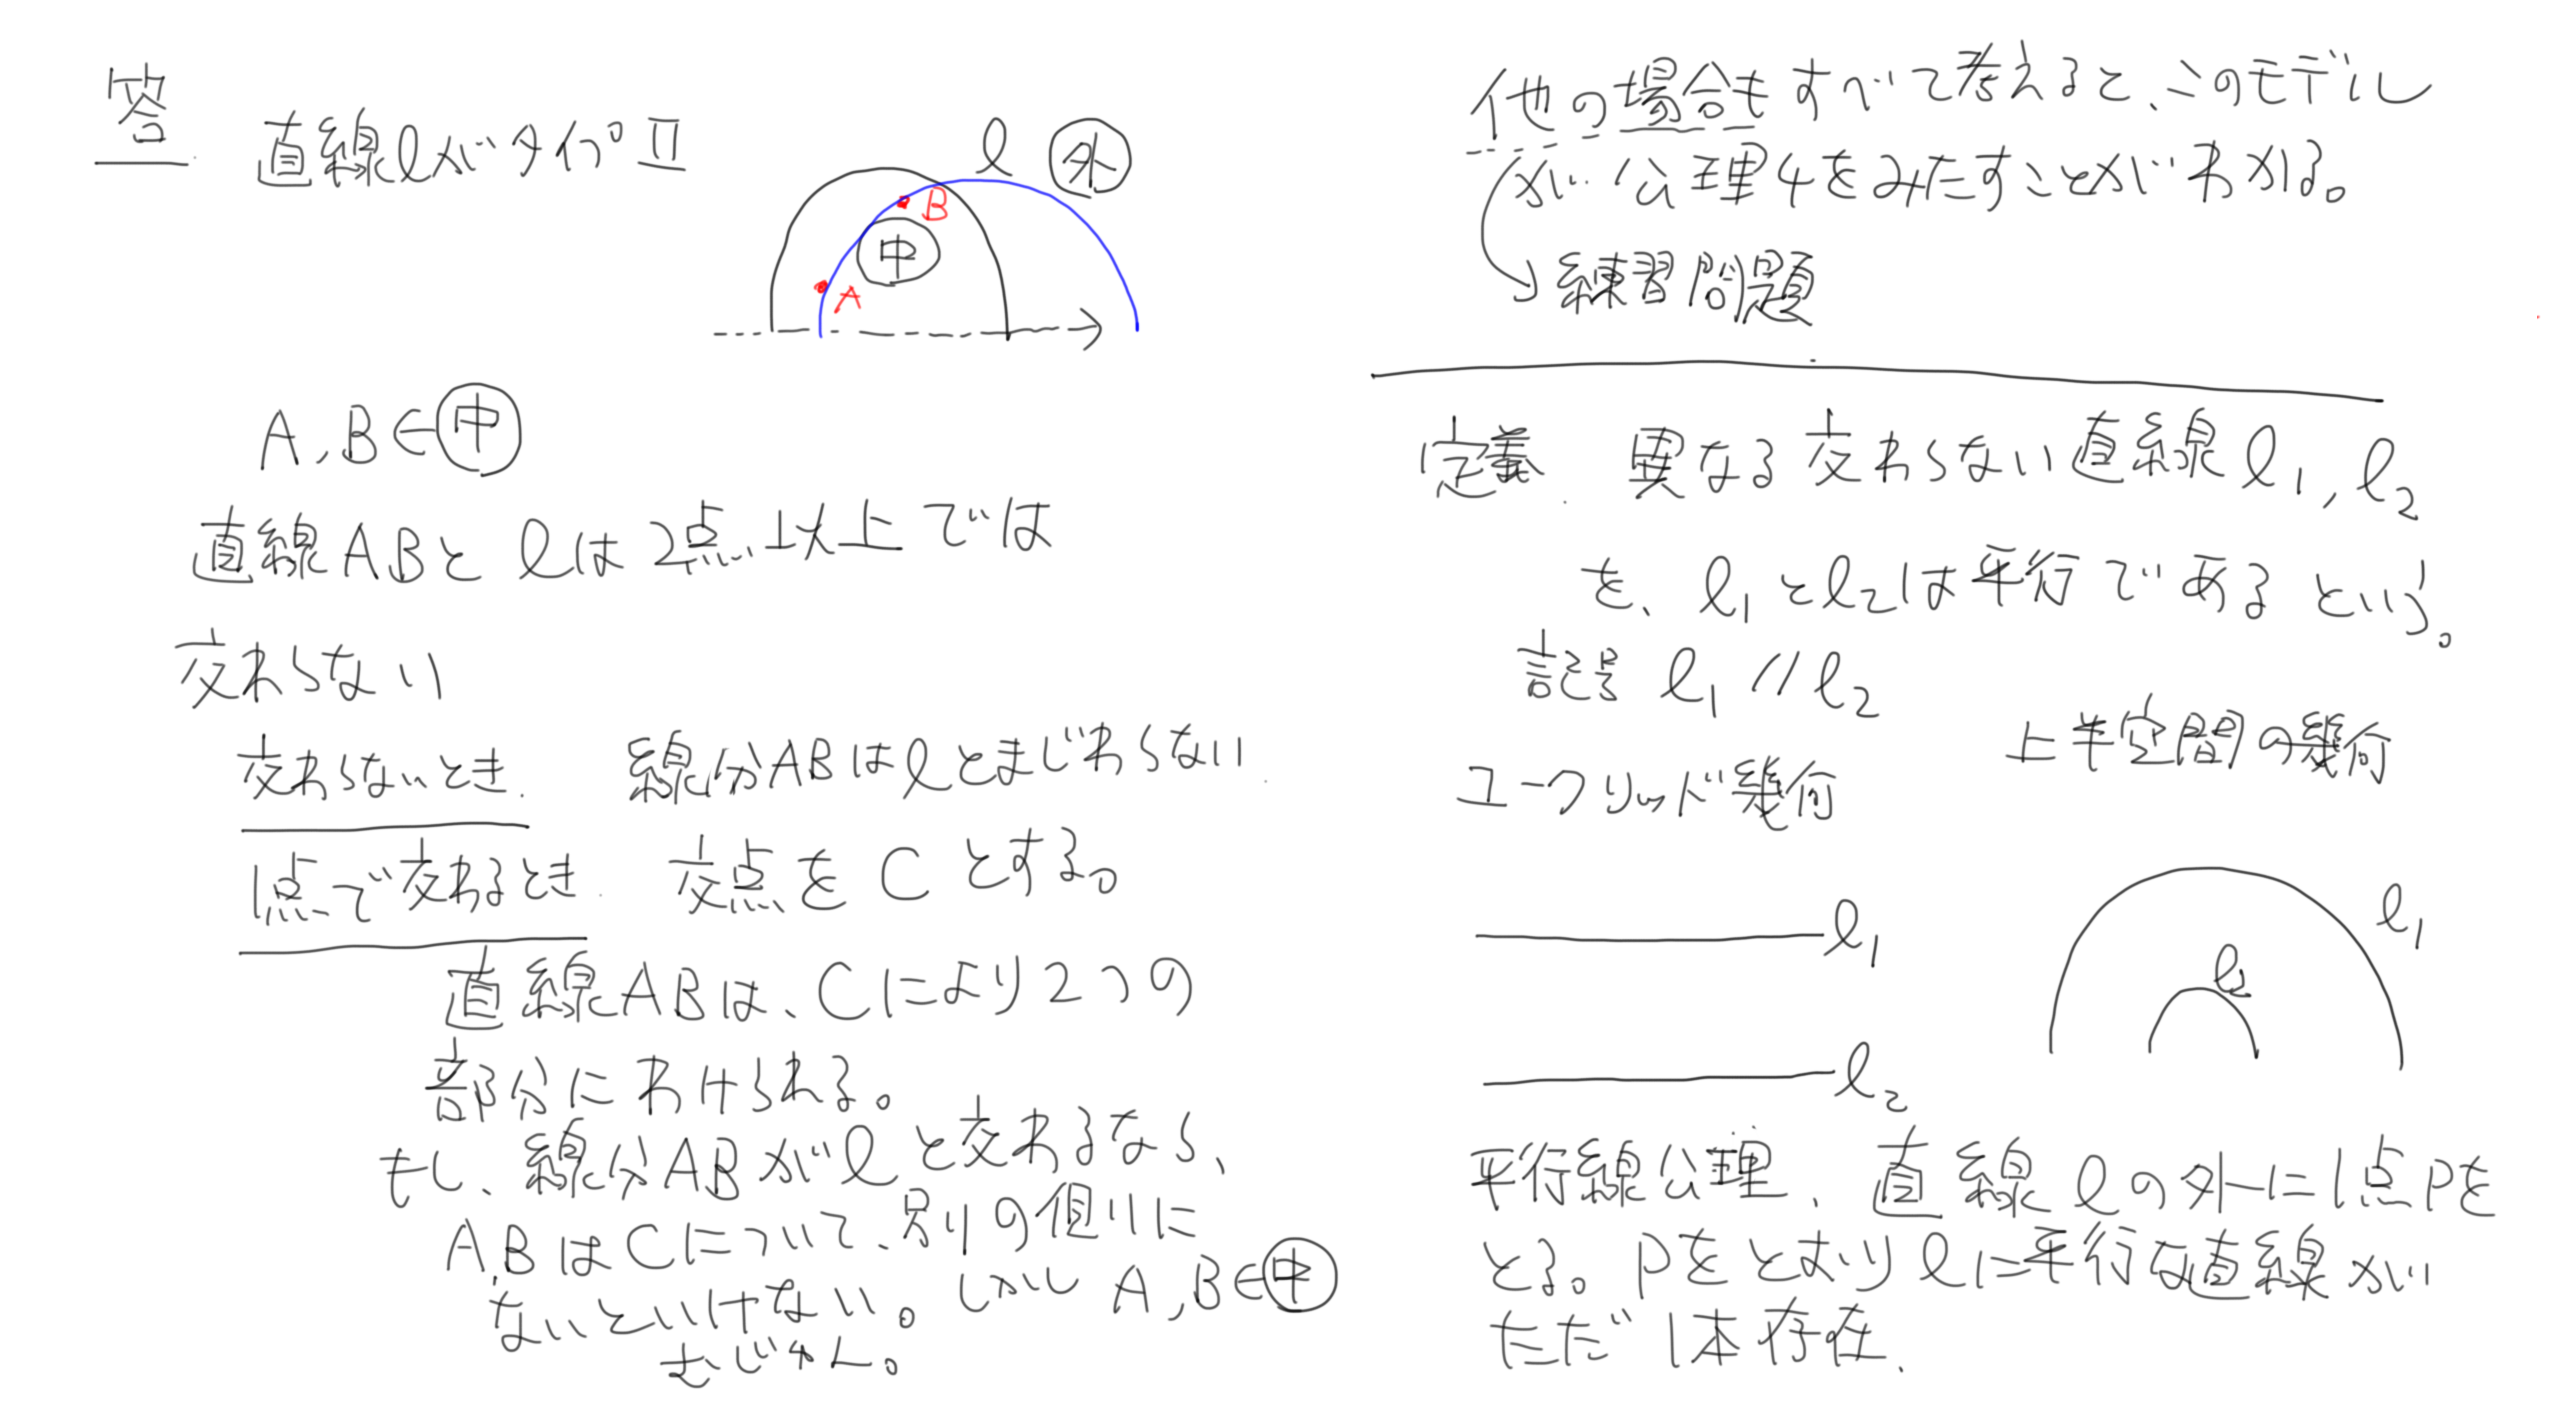 答 直線lがタイプII
l 外
B
中
A
A,B∈中
直線ABとlは2点以上では
交わらない
交わらないとき. 線分ABはlとまじわらない
1点で交わるとき. 交点をCとする。
直線ABは、Cにより2つの
部分にわけられる。
もし、線分ABがlと交わるなら、
A,BはCについて、別の側に
ないといけない。しかし A,B∈中
むじゅん。
他の場合もすべて考えると、このモデル
が公理4をみたすことがわかる。
練習問題
定義. 異なる交わらない直線l₁,l₂
を、l₁とl₂は平行であるという。
記号 l₁//l₂
ユークリッド幾何
上半空間の幾何
l₁
l₂
l₁
l₂
平行線公理. 直線lの外に1点Pを
とる。Pをとおりlに平行な直線が
ただ1本存在.